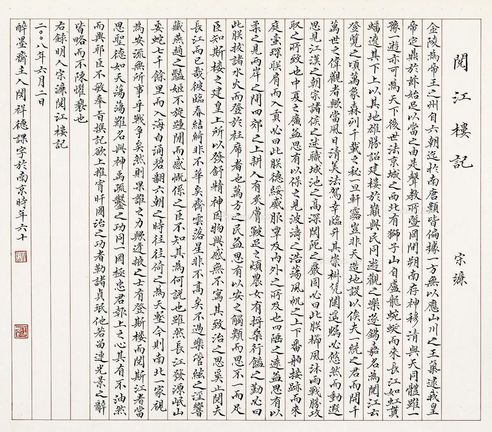 閱江樓記
宋濂
金陵為帝王之州自六朝迄於南唐類皆偏據一方無以應山川之王气逮我皇
帝定鼎於茲始足以當之由是聲教所暨罔間朔南存神穆清與天同體雖一
豫一遊亦可為天下後世法京城之西北有獅子山自盧龍蜿蜒而来長江如虹貫
蟠遶其下上以其地雄勝詔建樓於巔與民同遊觀之樂遂錫嘉名為閱江云
登覽之頃萬象森列千載之秘一旦軒露豈非天造地設以俟大一統之君而開千
萬世之偉觀者歟當風日清美法駕幸臨升其崇椒憑闌遙矚必悠然而動遐
思見江漢之朝宗諸侯之述職城池之高深關阨之嚴固必曰此朕櫛風沐雨戰勝攻
取之所致也中夏之廣益思有以保之見波濤之浩蕩風帆之上下番舶接跡而来
庭蠻琛聯肩而入貢必曰此朕德綏威服覃及内外之所及也四陲之遠益思有以
柔之見兩岸之間四郊之上耕人有炙膚皸足之煩農女有捋桑行饁之勤必曰
此朕拔諸水火而登於衽席者也萬方之民益思有以安之觸類而思不一而足
臣知斯樓之建皇上所以發舒精神因物興感無不寓其致治之思奚止閱夫
長江而已哉彼臨春結綺非不華矣齊雲落星非不高矣不過樂管絃之淫響
藏燕趙之豔姬不旋踵間而感慨係之臣不知其為何說也雖然長江發源岷山
委蛇七千餘里而入海白涌碧翻六朝之時往往倚之為天塹今則南北一家視
為安流無所事乎戰爭矣然則果誰之力歟逢掖之士有登斯樓而閱斯江者當
思聖德如天蕩蕩難名與神禹疏鑿之功同一罔極忠君報上之心其有不油然
而興耶臣不敏奉旨撰記欲上推宵旰圖治之功者勒諸貞珉他若留連光景之辭
皆略而不陳懼褻也
右錄明人宋濂閱江樓記
二〇〇八年六月二日